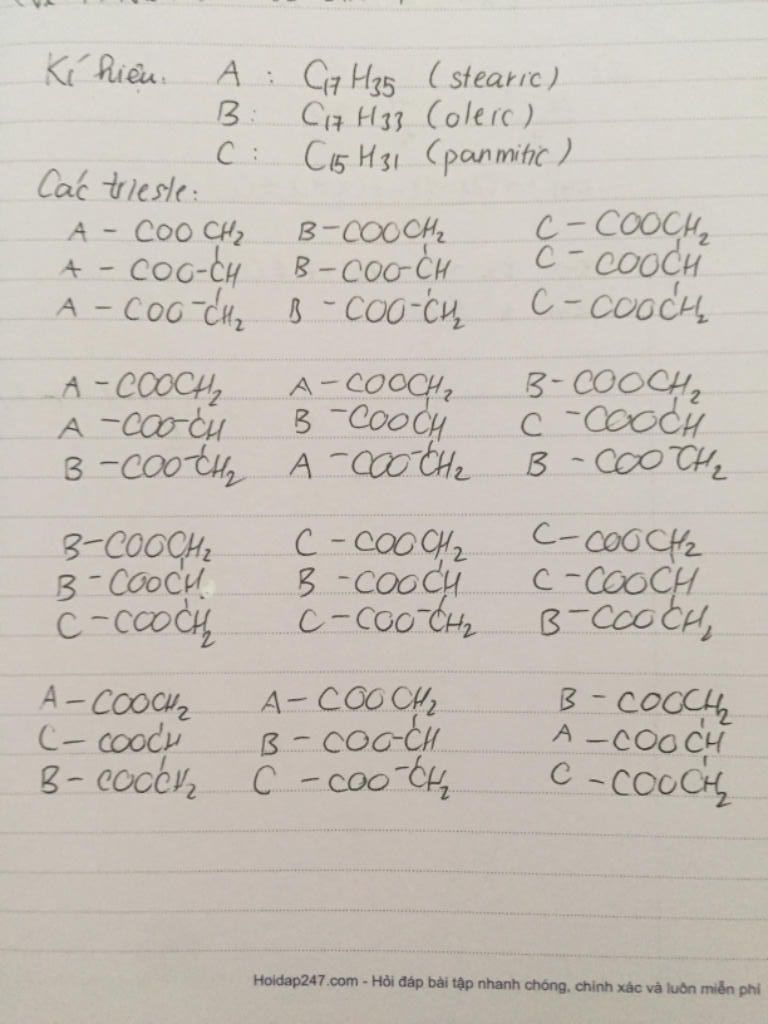 Kí hiệu: A : C17H35 (stearic)
B : C17H33 (oleic)
C : C15H31 (panmitic)
Các trieste:
A - COOCH2 B - COOCH2 C - COOCH2
A - COO-CH B - COO-CH C - COOCH
A - COO-CH2 B - COO-CH2 C - COOCH2
A - COOCH2 A - COOCH2 B - COOCH2
A - COO-CH B - COOCH C - COOCH
B - COO-CH2 A - COO-CH2 B - COO-CH2
B - COOCH2 C - COOCH2 C - COOCH2
B - COOCH B - COOCH C - COOCH
C - COOCH2 C - COO-CH2 B - COOCH2
A - COOCH2 A - COOCH2 B - COOCH2
C - COOCH B - COO-CH A - COOCH
B - COOCH2 C - COO-CH2 C - COOCH2
Hoidap247.com - Hỏi đáp bài tập nhanh chóng, chính xác và luôn miễn phí